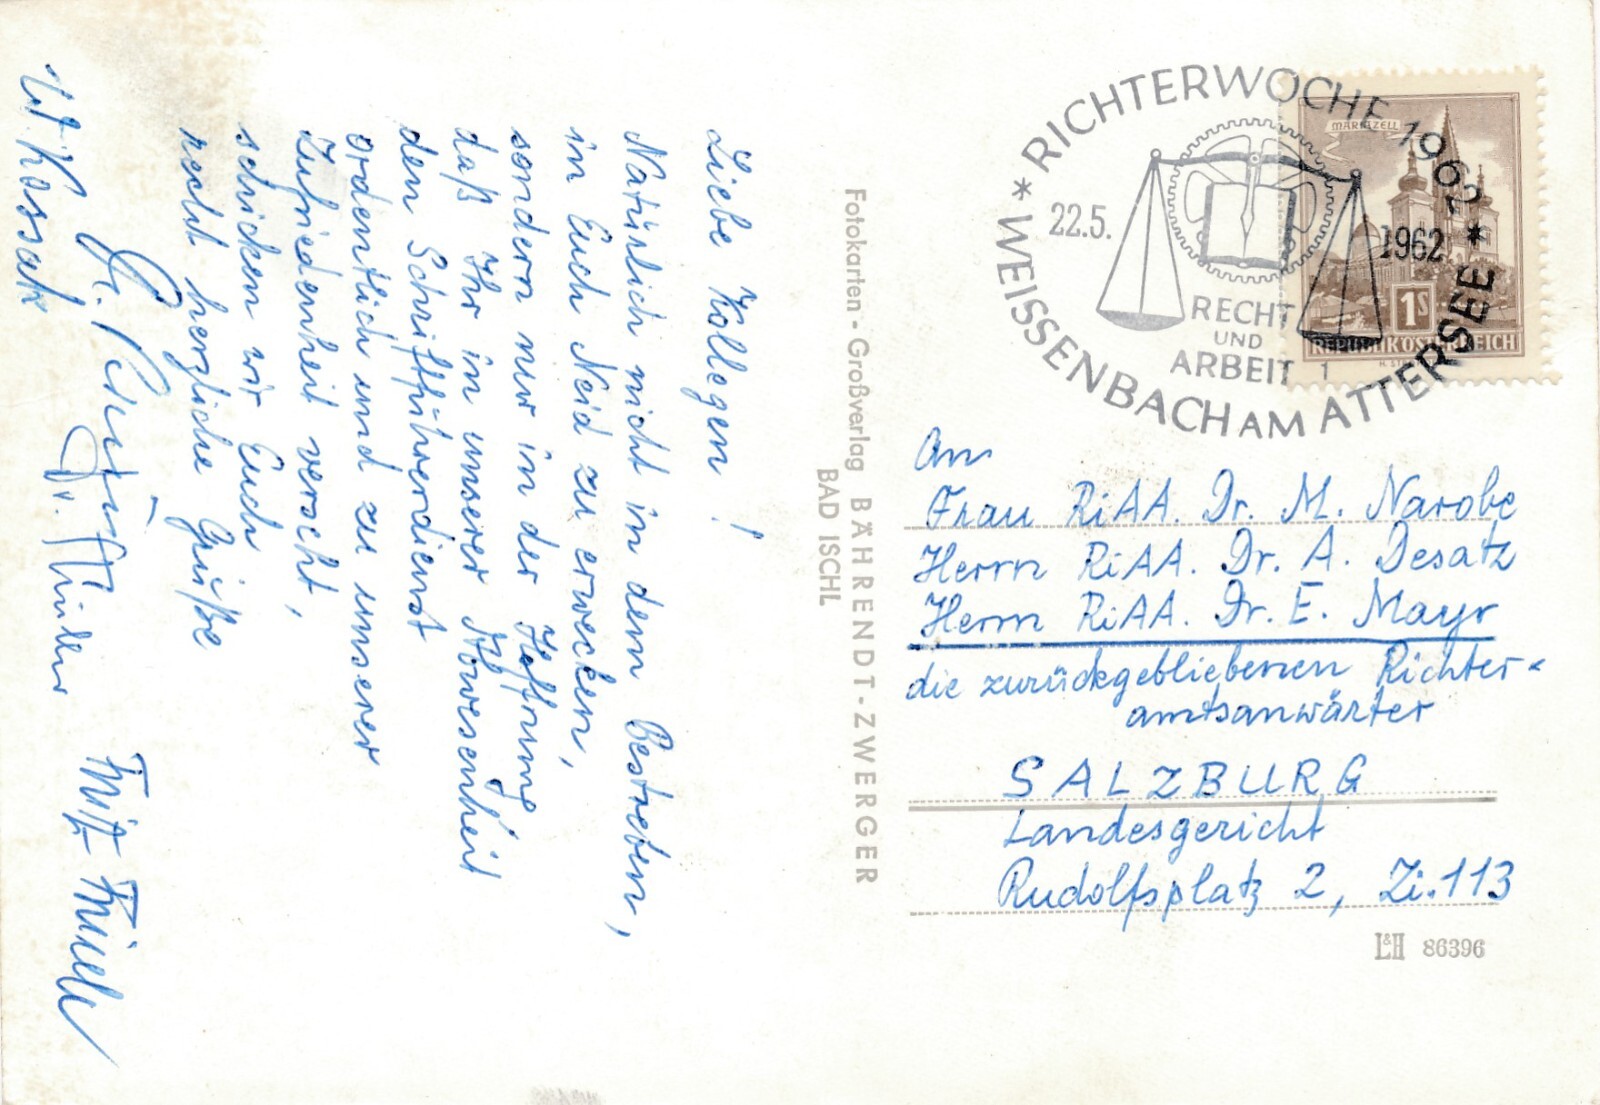 Liebe Kollegen!
Natürlich nicht in dem Bestreben,
in Euch Neid zu erwecken,
sondern nur in der Hoffnung,
daß Ihr in unserer Abwesenheit
den Schriftführerdienst
ordentlich und zu unserer
Zufriedenheit verseht,
schicken wir Euch
recht herzliche Grüße
W. Kossak
Fritz
Fotokarten - Großverlag BÄHRENDT-ZWERGER
BAD ISCHL
* RICHTERWOCHE 1962 *
WEISSENBACH AM ATTERSEE
22.5. 1962
RECHT
UND
ARBEIT
1
MARIAZELL
1S
REPUBLIK ÖSTERREICH
An
Frau RiAA. Dr. M. Narobe
Herrn RiAA. Dr. A. Desatz
Herrn RiAA. Dr. E. Mayr
die zurückgebliebenen Richter-
amtsanwärter
SALZBURG
Landesgericht
Rudolfsplatz 2, Zi. 113
L&H 86396